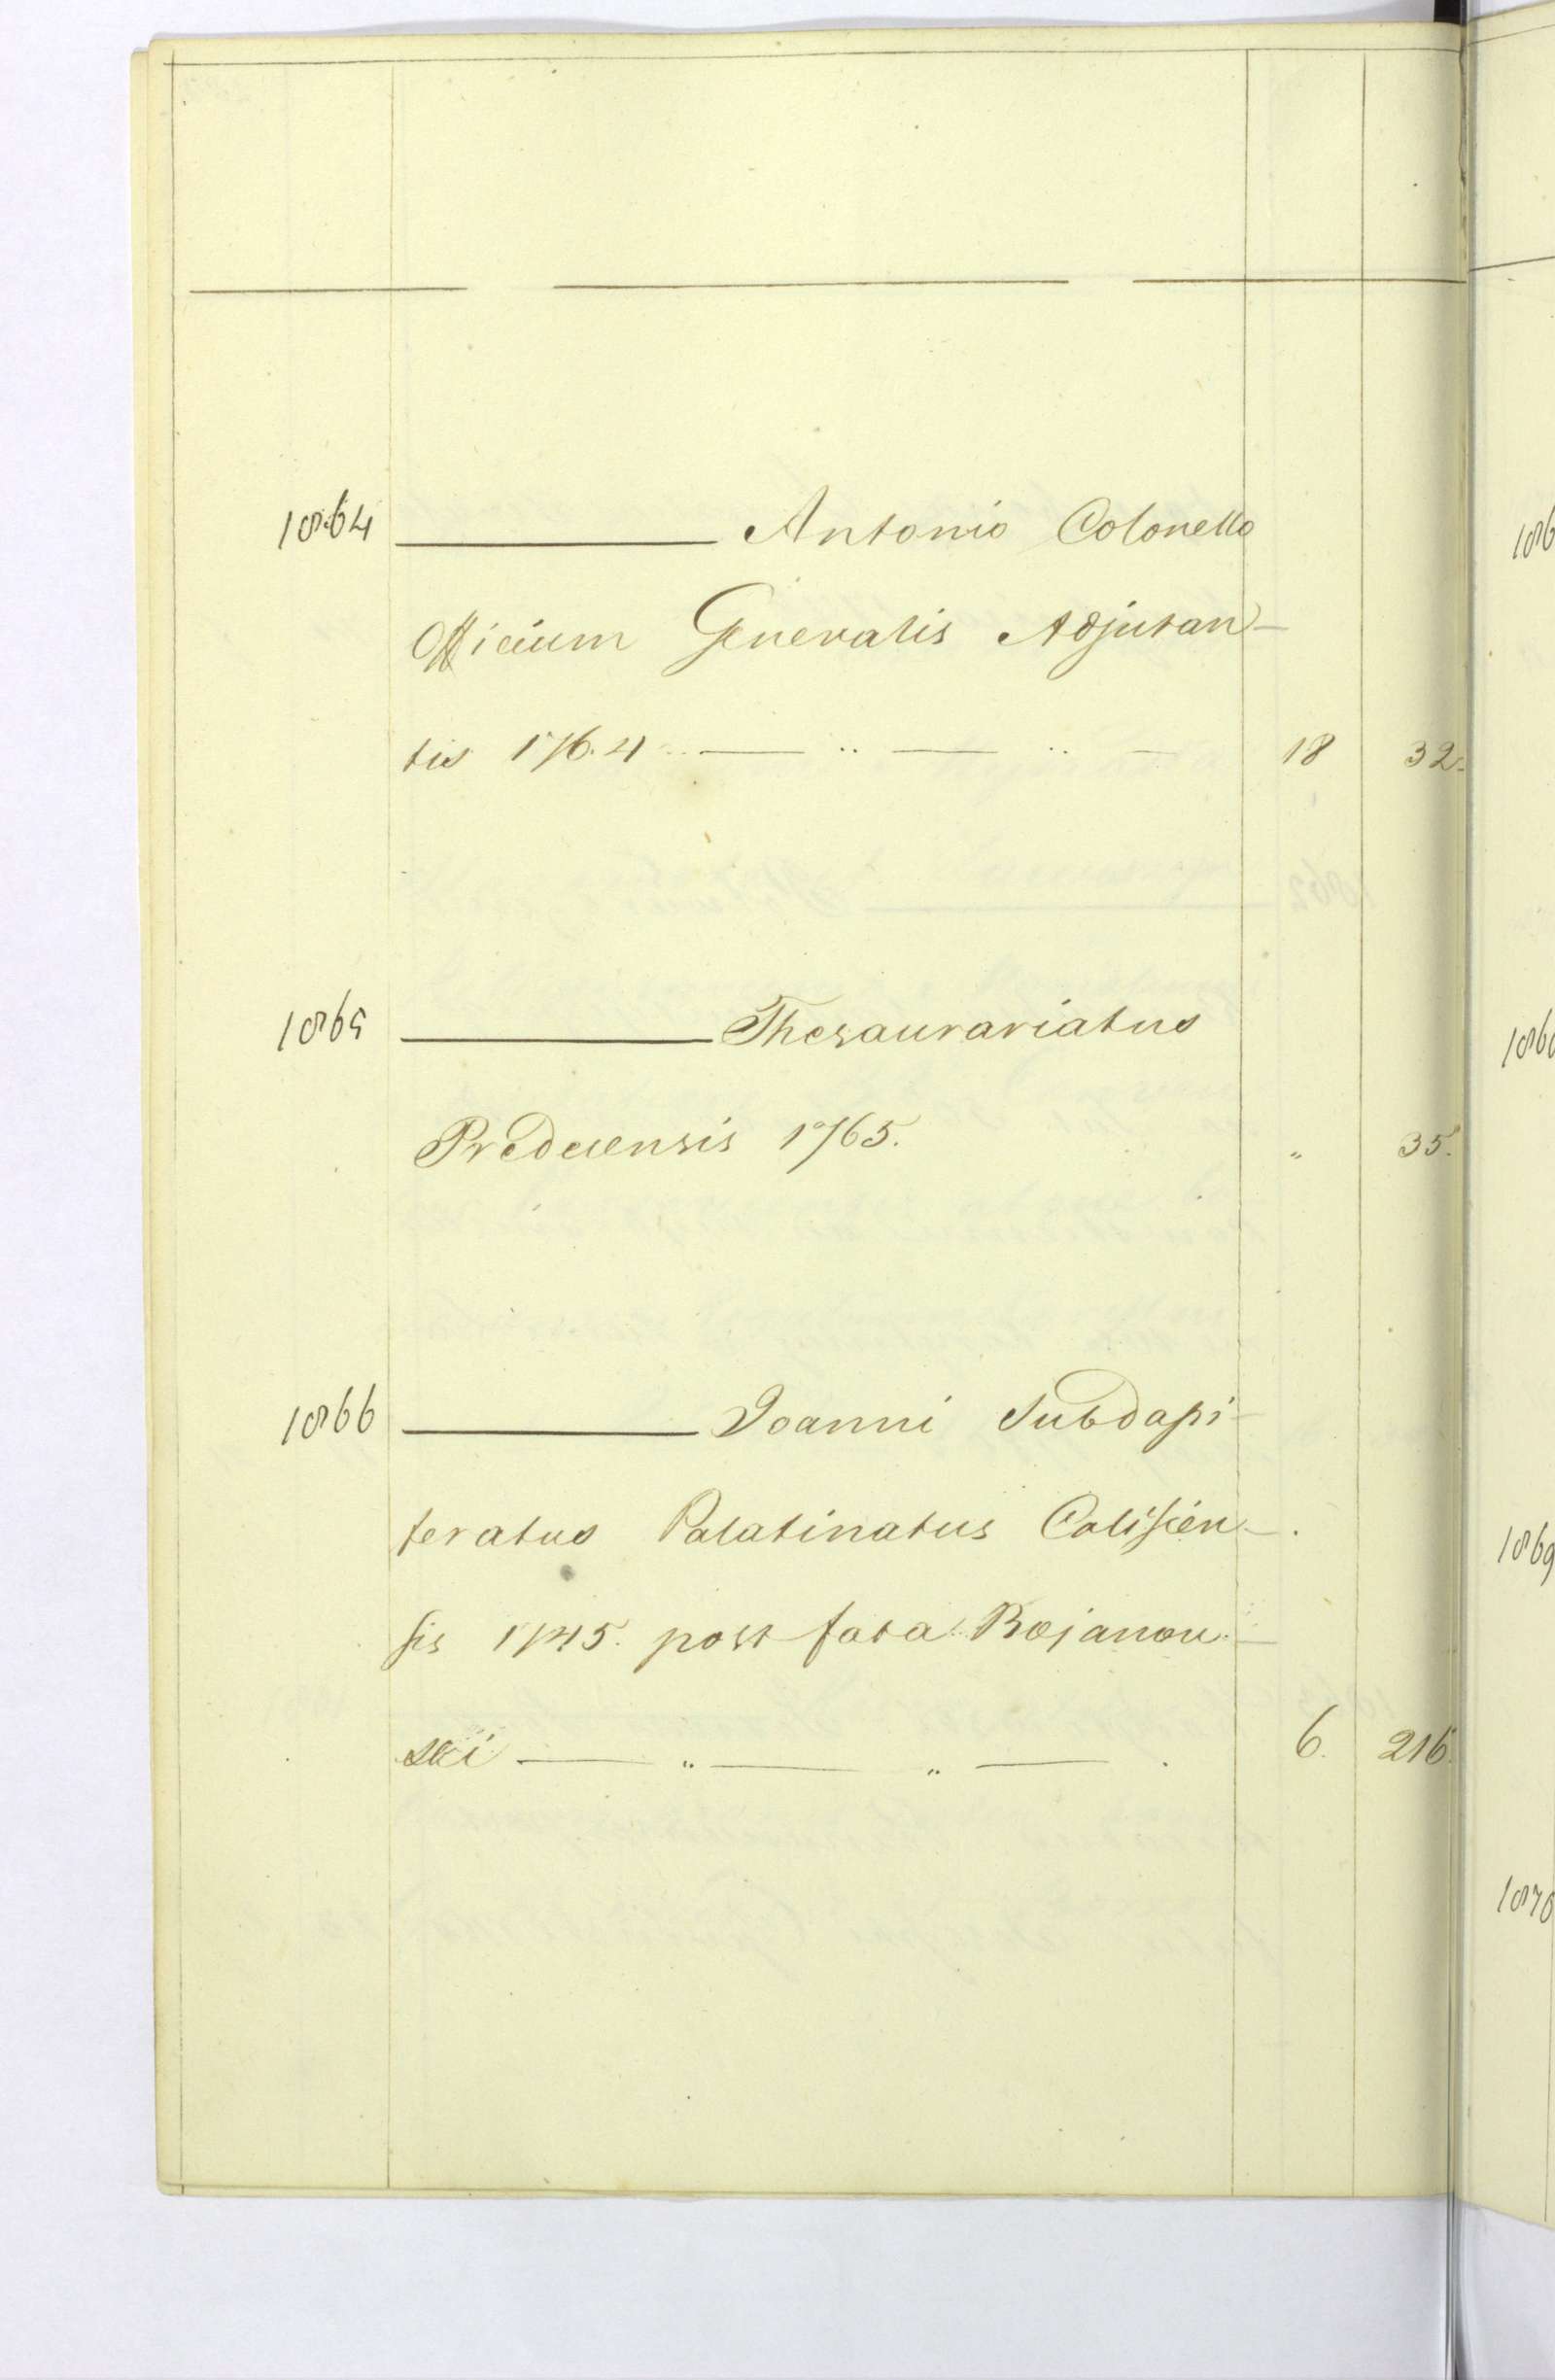 1864 ——— Antonio Colonello
Officium Generalis Adjutan-
tis 1764 — " — " — 18 32.
1865 ——— Thesaurariatus
1765. " 35.
1866 ——— Joanni Subdapi-
feratus Palatinatus Calisien-
sis 1745. post fata Bojanow-
skii — " — " — 6. 216.
186
186
1869
1870